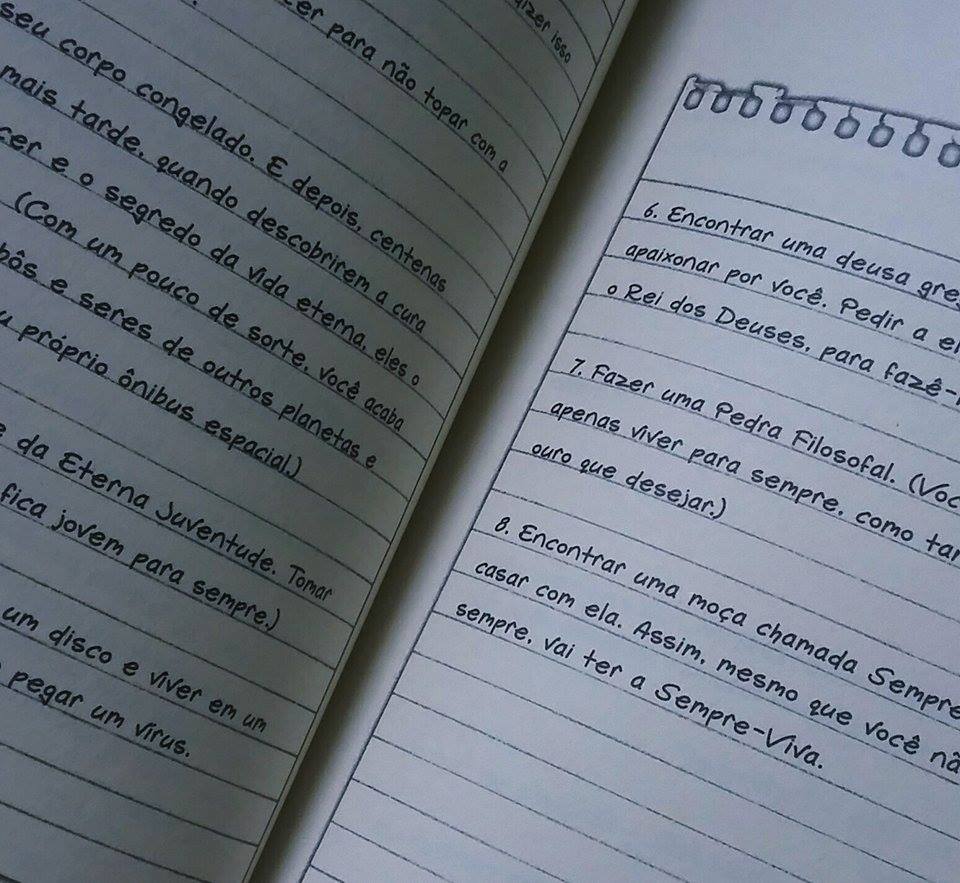 izer isso
er para não topar com a
seu corpo congelado. E depois, centenas
mais tarde, quando descobrirem a cura
cer e o segredo da vida eterna, eles o
(Com um pouco de sorte, você acaba
bôs e seres de outros planetas e
u próprio ônibus espacial.)
e da Eterna Juventude. Tomar
fica jovem para sempre.)
um disco e viver em um
pegar um vírus.
6. Encontrar uma deusa gre
apaixonar por você. Pedir a el
o Rei dos Deuses, para fazê-
7. Fazer uma Pedra Filosofal. (Voc
apenas viver para sempre, como tam
ouro que desejar.)
8. Encontrar uma moça chamada Sempre
casar com ela. Assim, mesmo que você nã
sempre, vai ter a Sempre-Viva.